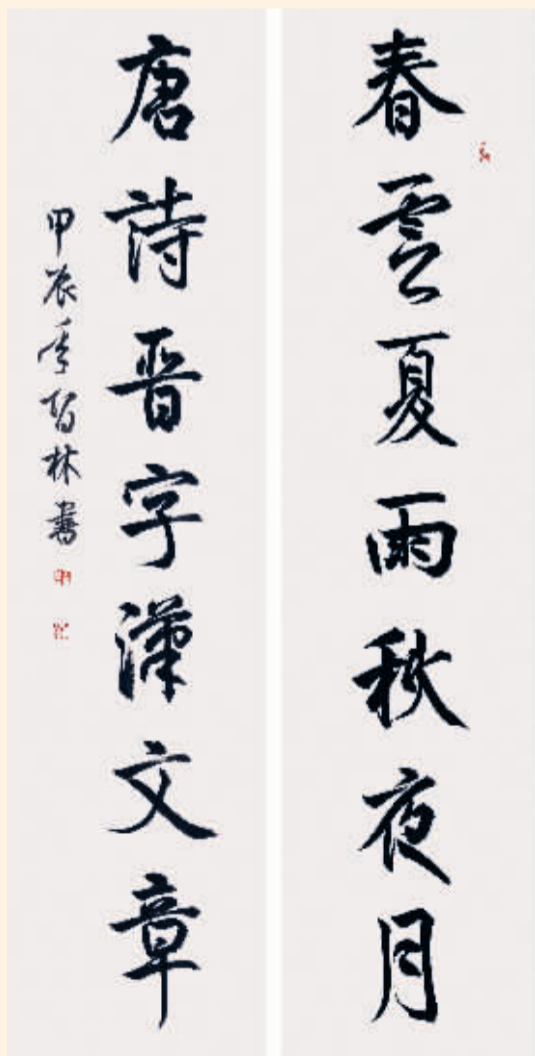 春雲夏雨秋夜月
唐詩晉字漢文章
甲辰年智林書